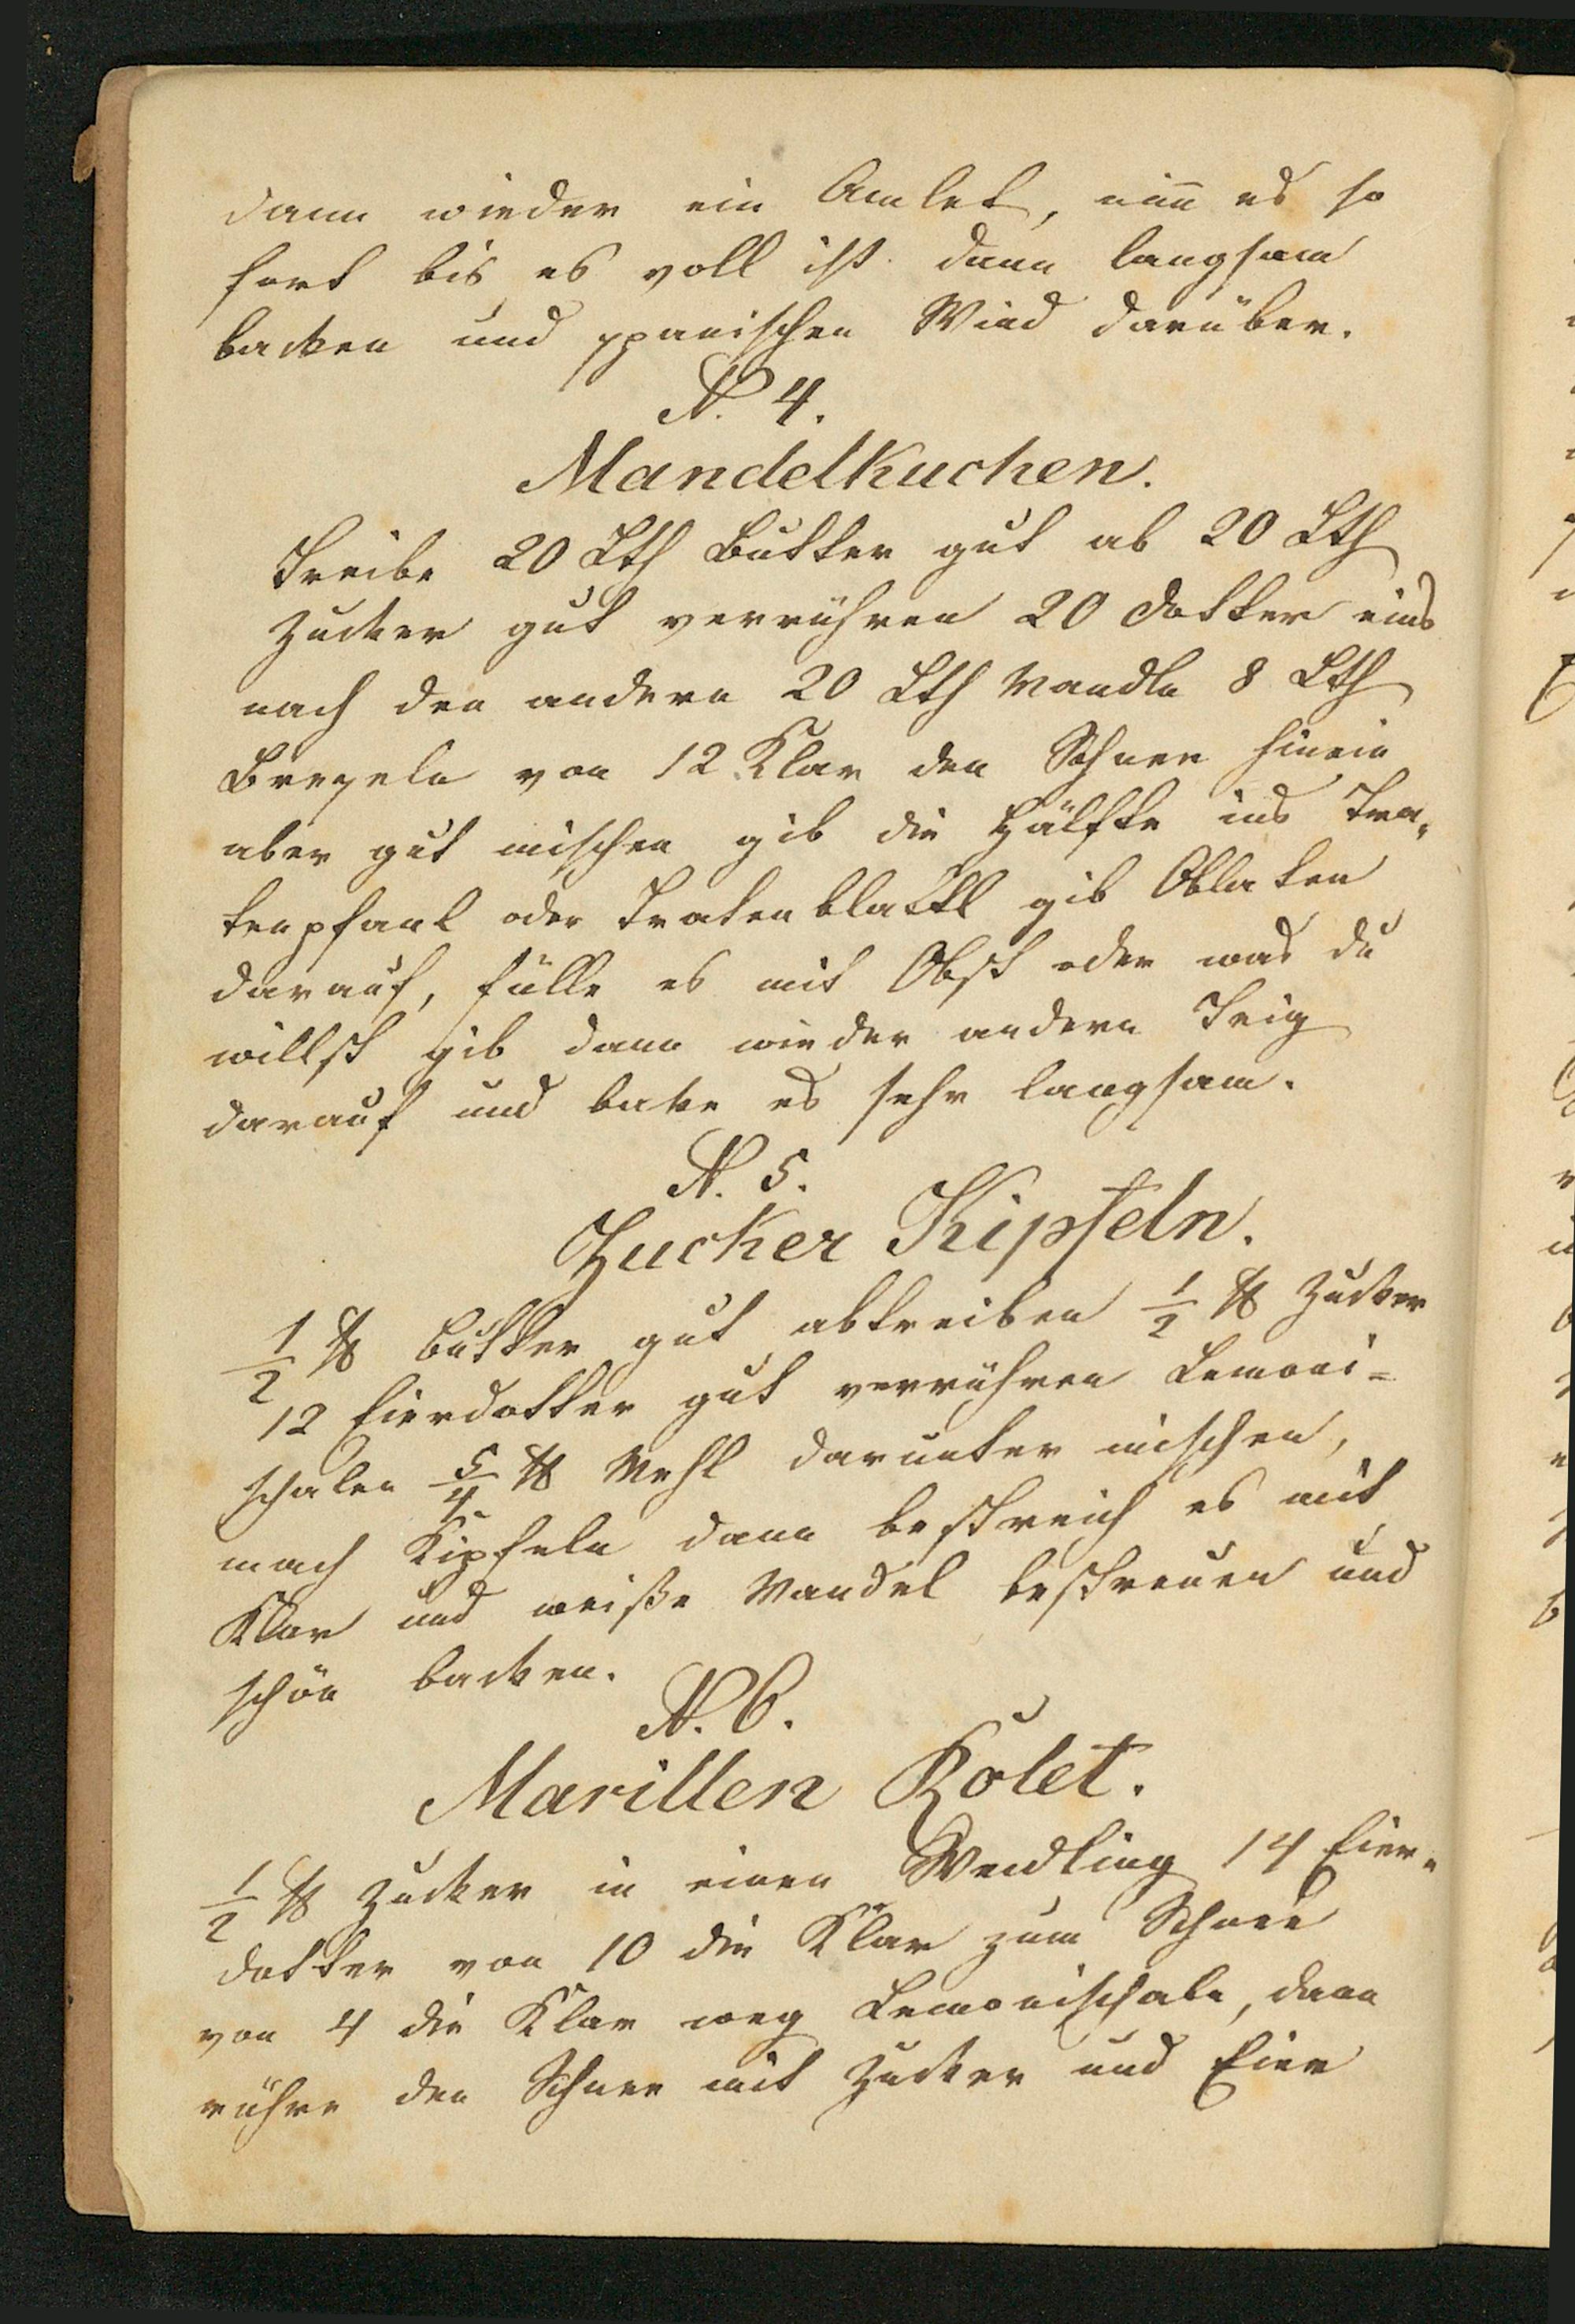 dann wieder ein Amlet, nim̄ es so
fort bis es voll ist. dann langsam
backen und spanischen Wind darüber.
N. 4.
Mandelkuchen.
Treibe 20 Lth Butter gut ab 20 Lth
Zucker gut verrühren 20 Dotter eins
nach den andern 20 Lth Mandln 8 Lth
Breseln von 12 Klar den Schnee hinein
aber gut mischen gib die Hälfte ins Tra„
tenpfanl oder Tratenblattl gib Oblaten
darauf, fülle es mit Obst oder was du
willst gib dann wieder andern Teig
darauf und bake es sehr langsam.
N. 5.
Zucker Kipfeln.
1/2 ℔ Butter gut abtreiben 1/2 ℔ Zucker
12 Eierdotter gut verrühren Lemoni=
schalen 5/4 ℔ Mehl darunter mischen,
mach Kipfeln dann bestreich es mit
Klar und weiße Mandel bestreuen und
schön backen.
N. 6.
Marillen Kolet.
1/2 ℔ Zucker in einen Weidling 14 Eier„
dotter von 10 die Klar zum Schnee
von 4 die Klar weg Lemonischale, dann
rühre den Schnee mit Zucker und Eier